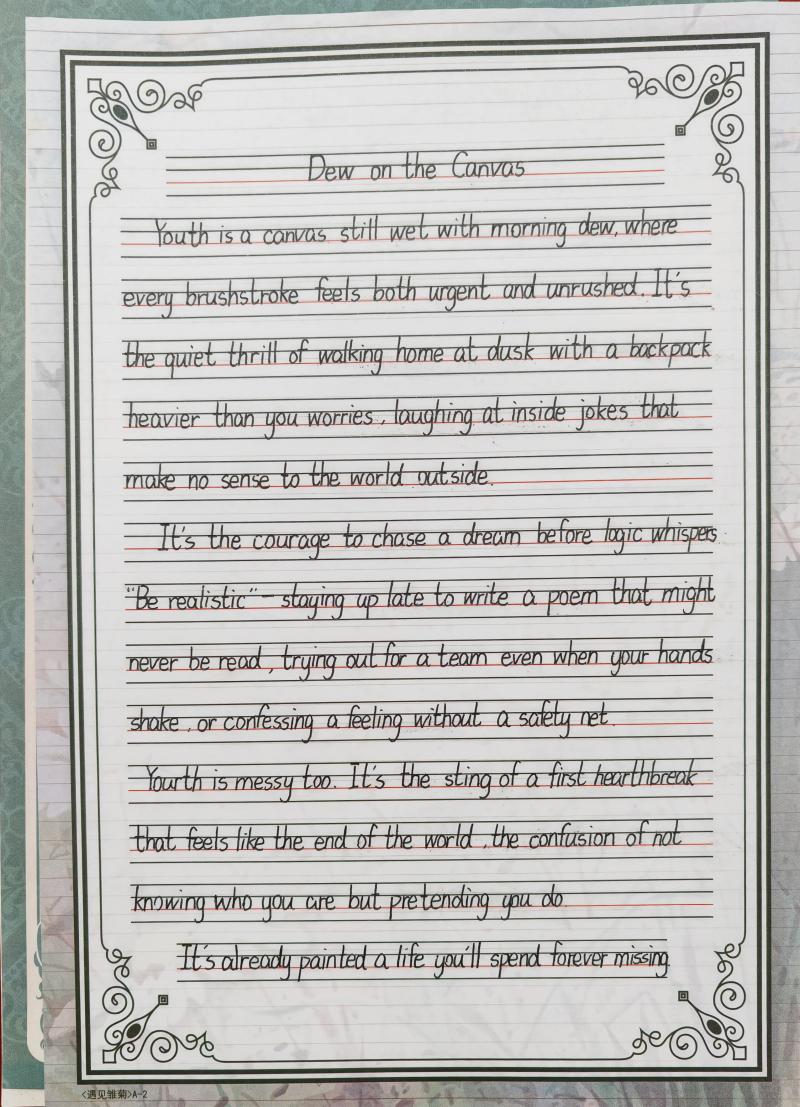 Dew on the Canvas
Youth is a canvas still wet with morning dew, where
every brushstroke feels both urgent and unrushed. It's
the quiet thrill of walking home at dusk with a backpack
heavier than you worries, laughing at inside jokes that
make no sense to the world outside.
It's the courage to chase a dream before logic whispers
"Be realistic" – staying up late to write a poem that might
never be read, trying out for a team even when your hands
shake, or confessing a feeling without a safety net.
Yourth is messy too. It's the sting of a first hearthbreak
that feels like the end of the world, the confusion of not
knowing who you are but pretending you do.
It's already painted a life you'll spend forever missing
<遇见雏菊>A-2